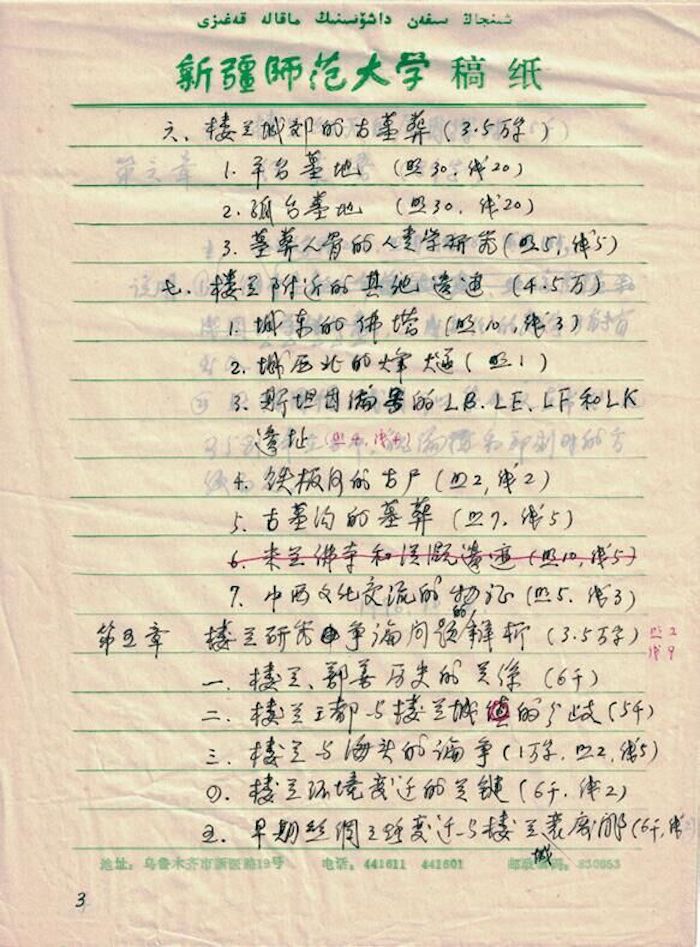 شىنجاڭ سىفەن داشۆسىنىڭ ماقالە قەغىزى
新疆师范大学 稿纸
六、楼兰城郊的古墓葬（3.5万字）
1. 平台墓地 （照30，线20）
2. 孤台墓地 （照30，线20）
3. 墓葬人骨的人类学研究（照5，线5）
七、楼兰附近的其他遗迹（4.5万）
1. 城东的佛塔（照10，线3）
2. 城西北的烽燧（照1）
3. 斯坦因编号的LB、LE、LF和LK
遗址
4. 铁板河的古尸（照2，线2）
5. 古墓沟的墓葬（照7，线5）
6. 米兰佛寺和汉代遗迹（照10，线5）
7. 中西文化交流的物证（照5，线3）
第五章 楼兰研究中争论问题的解析（3.5万字）照2
线9
一、楼兰、鄯善历史的关系（6千）
二、楼兰王都与楼兰城的分歧（5千）
三、楼兰与海头的论争（1万字，照2，线5）
四、楼兰环境变迁的关键（6千，线2）
五、早期丝绸之路变迁与楼兰城衰废（6千，线
地址：乌鲁木齐市新医路19号 电话：441611 441601 邮政编码：830053
3